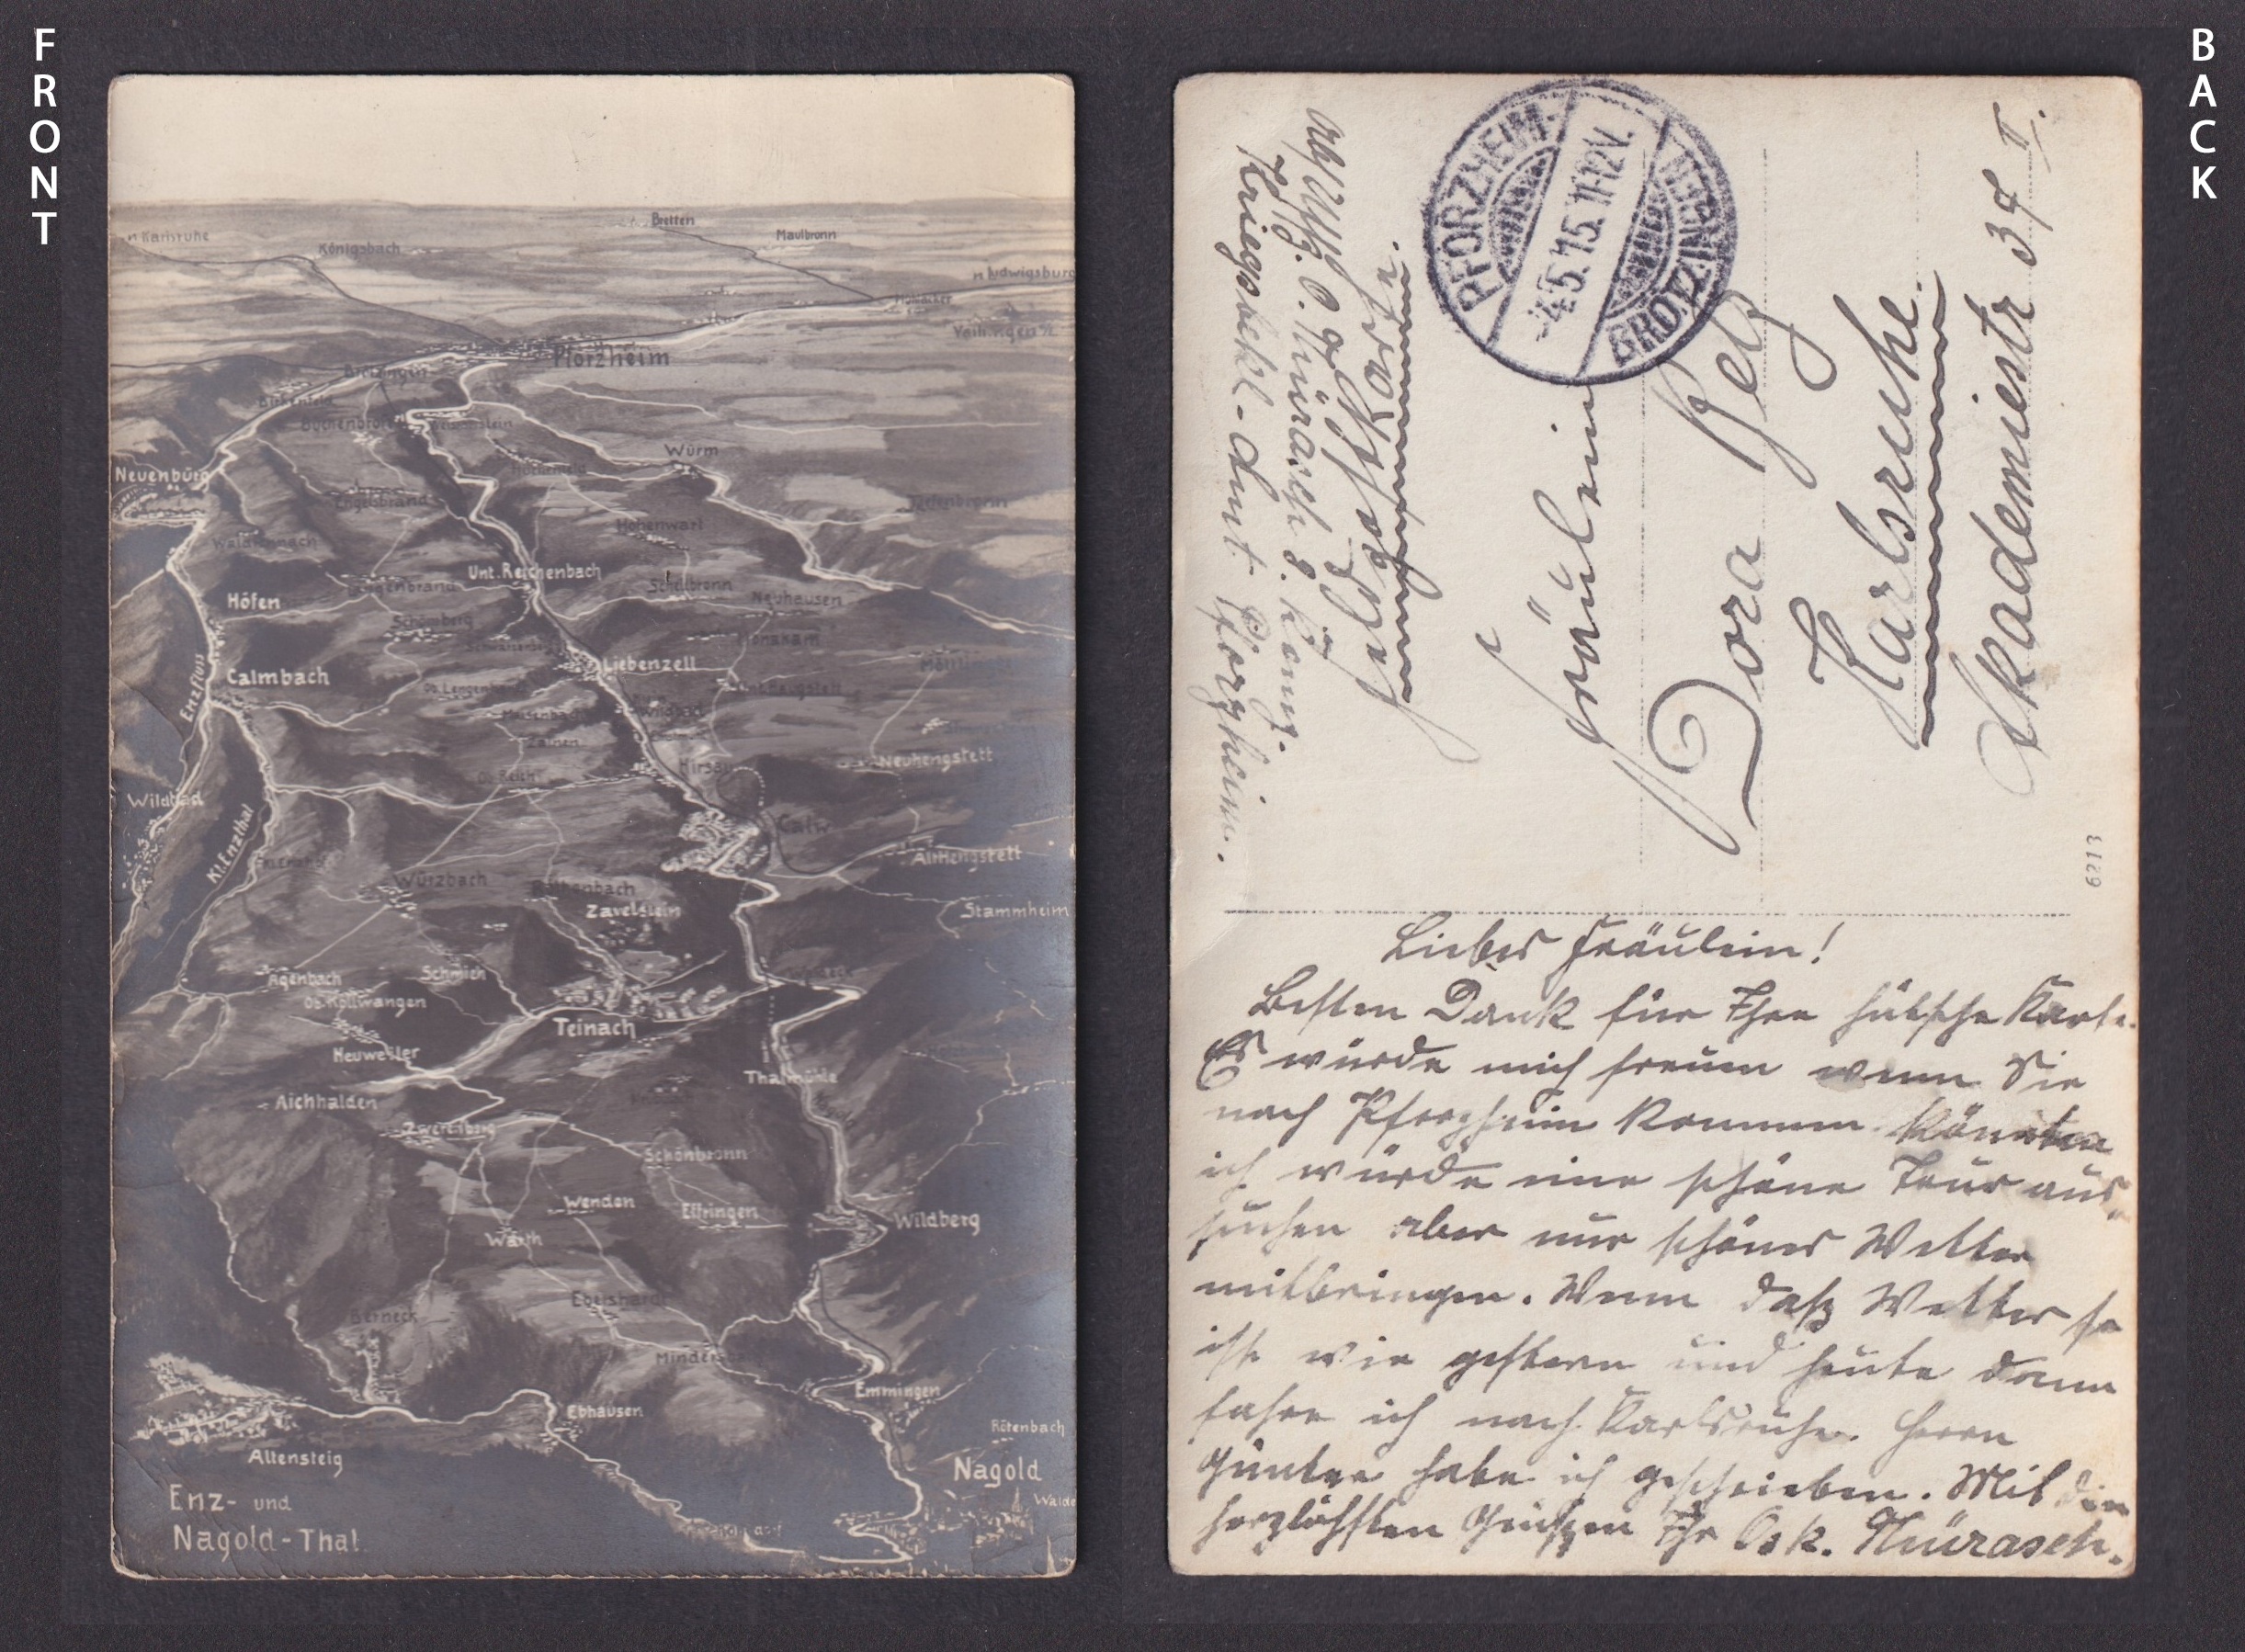 FRONT
BACK
n Karlsruhe
Königsbach
Bretten
Maulbronn
n Ludwigsburg
Mühlacker
Vaihingen
Pforzheim
Brötzingen
Birkenfeld
Büchenbronn
Weissenstein
Neuenbürg
Würm
Huchenfeld
Engelsbrand
Tiefenbronn
Hohenwart
Waldrennach
Unt. Reichenbach
Langenbrand
Schellbronn
Neuhausen
Höfen
Schömberg
Monakam
Liebenzell
Enzfluss
Calmbach
Ob. Lengenhardt
Zainen
Hirsau
Neuhengstett
Wildbad
Kl. Enzthal
Calw
Althengstett
Würzbach
Röthenbach
Zavelstein
Stammheim
Agenbach
Schmieh
Ob. Kollwangen
Teinach
Neuweiler
Thalmühle
Aichhalden
Zwerenberg
Schönbronn
Wenden
Effringen
Wildberg
Warth
Ebershardt
Berneck
Mindersbach
Emmingen
Ebhausen
Rötenbach
Altensteig
Nagold
Walde
Enz- und
Nagold-Thal.
PFORZHEIM-
-4.5.15.11-12V.
BRÖTZINGEN
Kriegsbekl.-Amt Pforzheim.
Feldpostkarte.
Fräulein
Dora Betz
Karlsruhe.
Akademiestr 34 II.
6213
Liebes Fräulein!
Besten Dank für Ihre hübsche Karte.
Es würde mich freuen wenn Sie
nach Pforzheim kommen könnten
ich würde eine schöne Tour aus-
suchen aber nur schönes Wetter
mitbringen. Wenn dasz Wetter so
ist wie gestern und heute dann
fahre ich nach Karlsruhe. Herrn
Günter habe ich geschrieben. Mit den
herzlichsten Grüszen Ihr Osk. Nürasch.